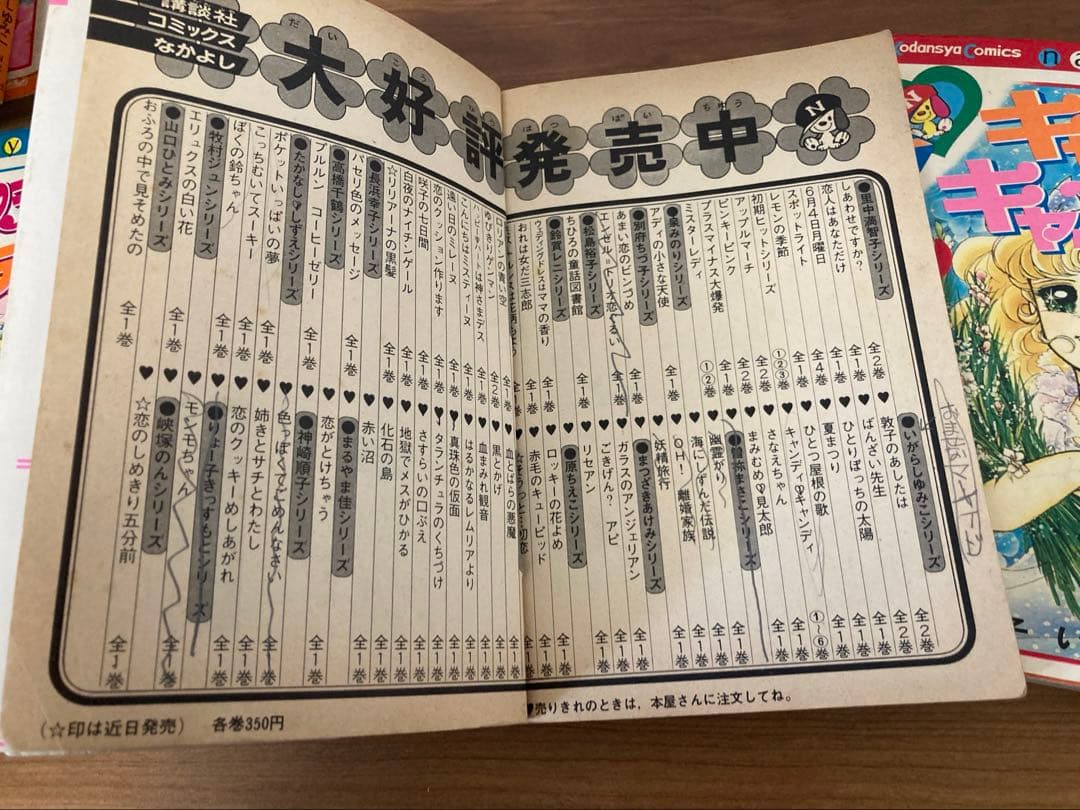 講談社
コミックス
なかよし
大好評発売中
だいこうひょうはつばいちゅう
N
●里中満智子シリーズ
しあわせですか? 全2巻
恋人はあなただけ 全1巻
6月4日月曜日 全1巻
スポットライト 全4巻
レモンの季節 全1巻
初期ヒットシリーズ ①②③
アップルマーチ 全2巻
ピンキーピンク 全1巻
プラスマイナス大爆発 全1巻
ミスターレディ ①②巻
●泉みのりシリーズ
アディの小さな天使 全1巻
●別府ちづ子シリーズ
あまい恋のビンづめ 全1巻
●松島裕子シリーズ
ちひろの童話図書館 全1巻
●鈴賀レニシリーズ
ウェディングドレスはママの香り 全1巻
おれは女だ三志郎 全1巻
白夜のナイチンゲール
☆リリアーナの黒髪
咲子の七日間 全1巻
恋のクッション作ります 全1巻
遠い日のミレーヌ 全1巻
こんにちはミスティーヌ 全1巻
●長浜幸子シリーズ
パセリ色のメッセージ 全1巻
●高橋千鶴シリーズ
プルルン コーヒーゼリー 全1巻
●たかなし♡しずえシリーズ
ポケットいっぱいの夢 全1巻
こっちむいてスーキー 全1巻
ぼくの鈴ちゃん 全1巻
●牧村ジュンシリーズ
エリュクスの白い花 全1巻
●山口ひとみシリーズ
おふろの中で見そめたの 全1巻
●いがらしゆみこシリーズ
敦子のあしたは 全2巻
ばんざい先生 全2巻
ひとりぼっちの太陽 全1巻
夏まつり 全1巻
ひとつ屋根の歌 全1巻
キャンディ♡キャンディ ①~⑥
さなえちゃん 全1巻
まみむめ♡見太郎 全1巻
幽霊がり 全1巻
海にしずんだ伝説 全1巻
OH!離婚家族 全1巻
妖精旅行 全1巻
●まつざきあけみシリーズ
ガラスのアンジェリアン 全1巻
ごきげん?アピ 全1巻
リセアン 全1巻
●原ちえこシリーズ
ロッキーの花よめ 全1巻
赤毛のキューピッド 全1巻
血とばらの悪魔 全1巻
黒とかげ 全1巻
血まみれ観音 全1巻
はるかなるレムリアより 全1巻
真珠色の仮面 全1巻
タランチュラのくちづけ 全1巻
さすらいの口ぶえ 全1巻
地獄でメスがひかる 全1巻
化石の島 全1巻
赤い沼 全1巻
●まるやま佳シリーズ
恋がとけちゃう 全1巻
●神崎順子シリーズ
色っぽくてごめんなさい 全1巻
姉きとサチとわたし 全1巻
恋のクッキーめしあがれ 全1巻
●りょー子きっすもとシリーズ
モンモちゃん 全1巻
●峡塚のんシリーズ
☆恋のしめきり五分前 全1巻
(☆印は近日発売) 各巻350円
♥売りきれのときは,本屋さんに注文してね。
Kodansya Comics
キャ
キャ